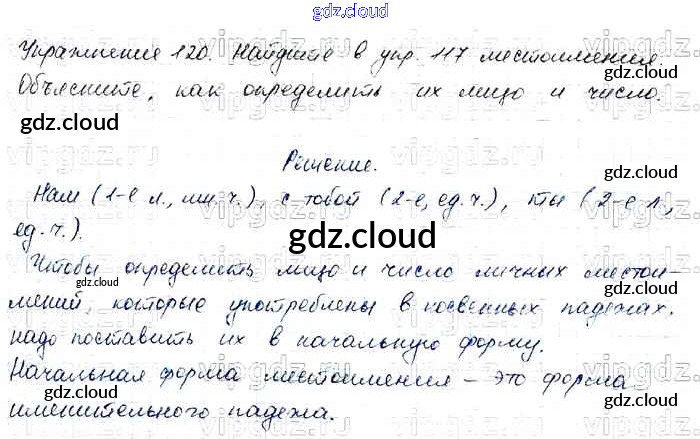 gdz.cloud
Упражнение 120. Найдите в упр. 117 местоимения.
Объясните, как определить их лицо и число.
gdz.cloud
gdz.cloud
Решение.
gdz.cloud
Нам (1-е л., мн. ч.), с тобой (2-е, ед. ч.), ты (2-е л.,
ед. ч.).
gdz.cloud
Чтобы определить лицо и число личных местои-
мений, которые употреблены в косвенных падежах,
gdz.cloud
gdz.cloud
надо поставить их в начальную форму.
Начальная форма местоимения – это форма
именительного падежа.
gdz.cloud
gdz.cloud